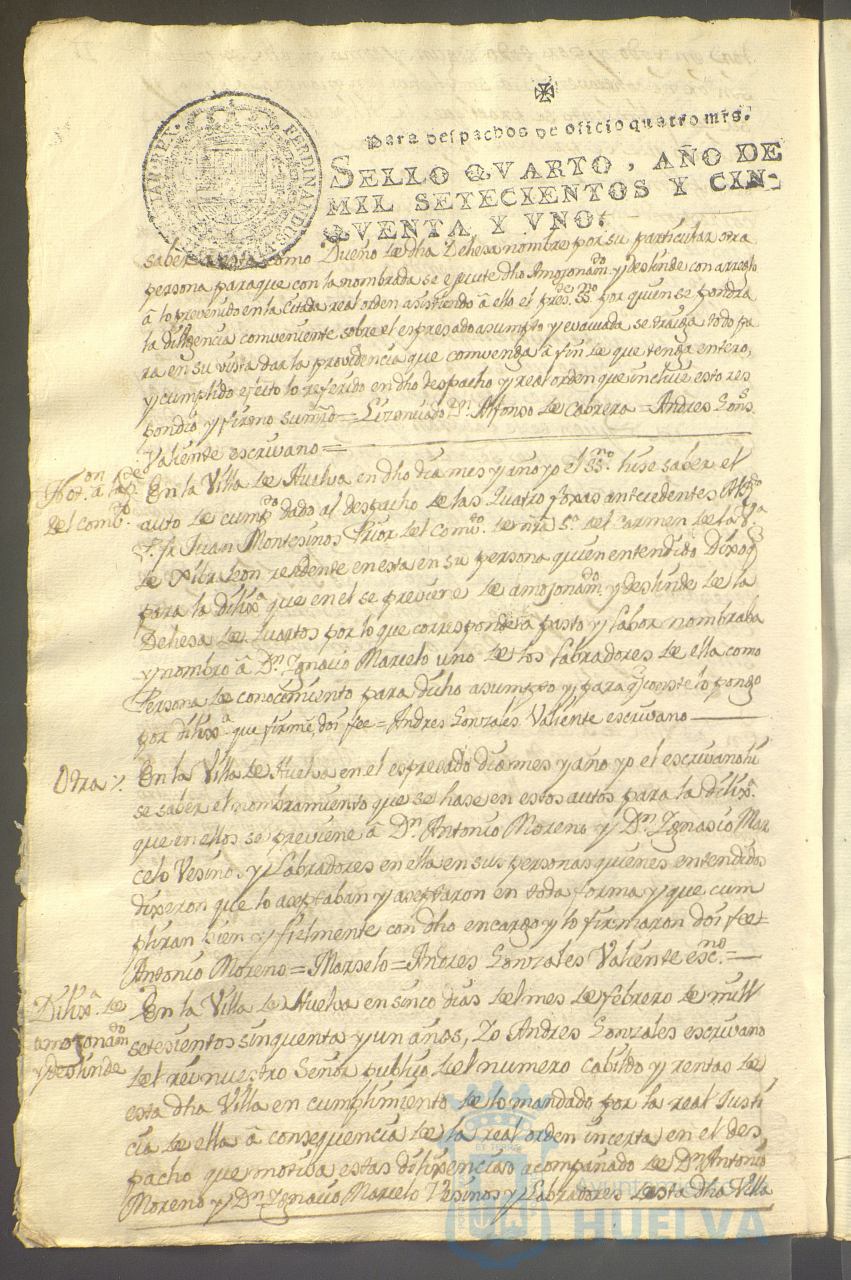 Para despachos de oficio quatro mrs.
SELLO QVARTO, AÑO DE
MIL SETECIENTOS Y CIN-
QVENTA Y VNO.
FERDINANDUS
saber a esta como Dueño de dha Dehesa nombre por su particular otra
persona para que con la nombrada se ejecute dho Amojonam.to y deslinde con arreglo
â lo prevenido en la citada real orden asistiendo â ello el pres.te ss.no por quien se pondra
la diligencia conveniente sobre el espresado asumpto y evacuada se traiga todo pa
ra en su vista dar la providencia que convenga â fin de que tenga entero,
y cumplido efecto lo referido en dho despacho y real orden que incluie esto res
pondio y firmo su mrd = Lizenciado Dn. Alfonso de Cabrera = Andres Gons.s
Valiente escrivano =
Not.on
del comb.to
En la Villa de Huelva en dho dia mes y año yo el ss.no hise saber el
auto de cump.to dado al despacho de las quatro foxas antecedentes Al
P. fr Juan Montesinos Prior del Comb.to de nra S.a del Carmen de la V.a
de Xibraleon residente en esta en su persona quien entendido Dixo q
para la dilix.a que en el se previene de amojonam.to y deslinde de la
Dehesa de Quartos por lo que corresponde â pasto y labor nombraba
y nombro â Dn. Ygnacio Marcelo uno de los Labradores de ella como
Persona de conocimiento para dicho asumpto y para q conste lo pongo
por dilix.a que firme doi fee = Andres Gonzales Valiente escrivano
Otra
En la Villa de Huelva en el espresado dia mes y año yo el escrivano hi
se saber el nombramiento que se hase en estos autos para la dilix.a
que en ellos se previene â Dn. Antonio Moreno y Dn. Ygnasio Mar
celo Vesinos y Labradores en ella en sus personas quienes entendidos
dixeron que lo aceptaban y aceptaron en toda forma y que cum
pliran bien y fielmente con dho encargo y lo firmaron doi fee =
Antonio Moreno = Marselo = Andres Gonzales Valiente esc.no =
Dilix.a de
amojonam.to
y deslinde
En la Villa de Huelva en sinco dias del mes de febrero de mill
setesientos sinquenta y un años, Yo Andres Gonzales escrivano
del rei nuestro Señor publico del numero cabildo y rentas de
esta dha Villa en cumplimiento de lo mandado por la real Justi
cia de ella â consequencia de la real orden incerta en el des
pacho que motiva estas dilixencias acompañado de Dn. Antonio
Moreno y Dn. Ygnacio Marcelo Vesinos y Labradores de esta dha Villa
Ayuntamiento
HUELVA